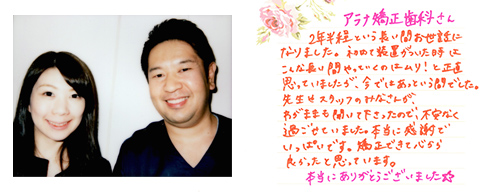 アラナ矯正歯科さん
2年半程という長い間お世話に
なりました。初めて装置がついた時は
こんな長い間やっていくのはムリ!と正直
思っていましたが、今ではあっという間でした。
先生やスタッフのみなさんが、
わがままも聞いて下さったので、不安なく
過ごせていました。本当に感謝で
いっぱいです。矯正できて心から
良かったと思っています。
本当にありがとうございました☆